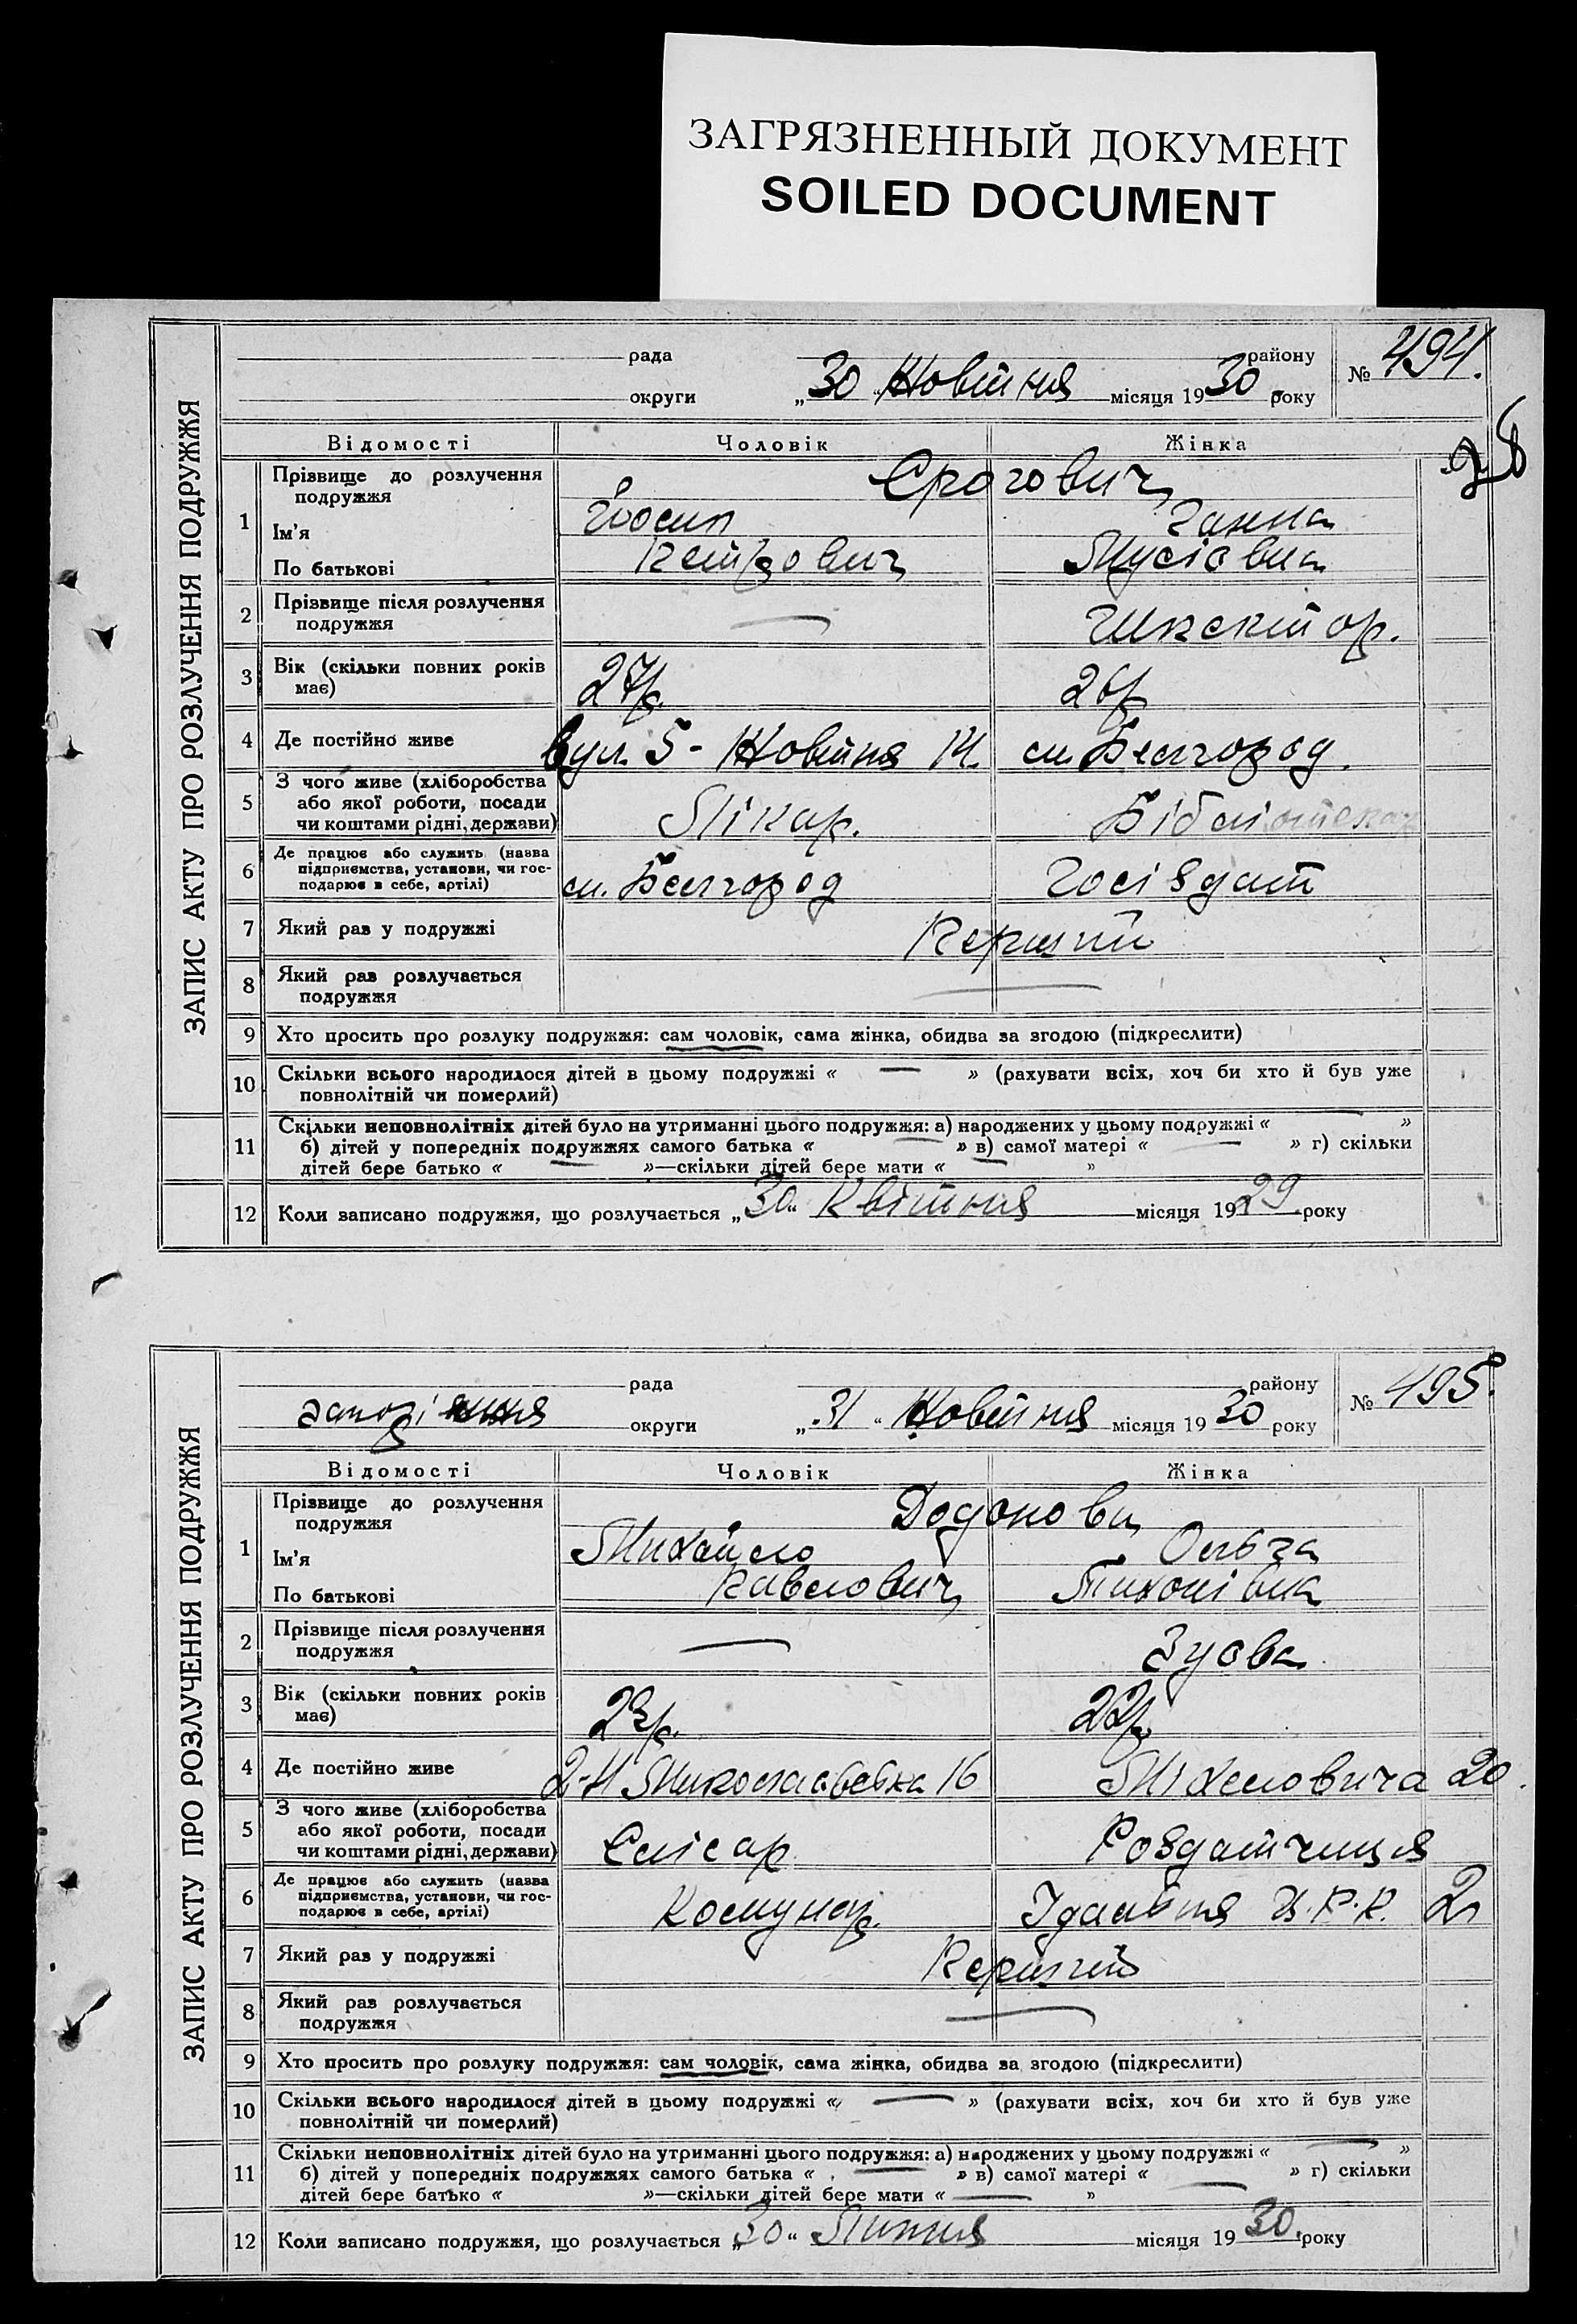 ЗАГРЯЗНЕННЫЙ ДОКУМЕНТ
SOILED DOCUMENT
ЗАПИС АКТУ ПРО РОЗЛУЧЕННЯ ПОДРУЖЖЯ
рада району № 494.
округи „30“ Жовтня місяця 1930 року
Відомості Чоловік Жінка
28
1 Прізвище до розлучення подружжя
Срогович
Ім'я Йосип Ганна
По батькові Петрович Мусіовна
2 Прізвище після розлучення подружжя —
3 Вік (скільки повних років має) 27 р. 26 р
4 Де постійно живе вул. 5-Жовтня 14. ст. Белгород.
5 З чого живе (хліборобства або якої роботи, посади чи коштами рідні, держави) Лікар. Бібліотекар
6 Де працює або служить (назва підприємства, установи, чи господарює в себе, артілі) ст. Белгород Госіздат
7 Який раз у подружжі Перший
8 Який раз розлучається подружжя —
9 Хто просить про розлуку подружжя: сам чоловік, сама жінка, обидва за згодою (підкреслити)
10 Скільки всього народилося дітей в цьому подружжі « — » (рахувати всіх, хоч би хто й був уже
повнолітній чи померлий)
11 Скільки неповнолітніх дітей було на утриманні цього подружжя: а) народжених у цьому подружжі « — »
б) дітей у попередніх подружжях самого батька « — » в) самої матері « — » г) скільки
дітей бере батько « — »—скільки дітей бере мати « »
12 Коли записано подружжя, що розлучається „30“ Квітня місяця 1929 року
ЗАПИС АКТУ ПРО РОЗЛУЧЕННЯ ПОДРУЖЖЯ
рада району № 495.
округи „31“ Жовтня місяця 1930 року
Відомості Чоловік Жінка
1 Прізвище до розлучення подружжя
Додонови
Ім'я Михайло Ольга
По батькові Павлович Тихонівна
2 Прізвище після розлучення подружжя — Зуова
3 Вік (скільки повних років має) 23 р. 22 р.
4 Де постійно живе 2-И Миколаевська 16 Міхеловича 20.
5 З чого живе (хліборобства або якої роботи, посади чи коштами рідні, держави) Слісар Роздатчиця
6 Де працює або служить (назва підприємства, установи, чи господарює в себе, артілі) Комунар. Їдальня Ц.Р.К. 2
7 Який раз у подружжі Перший
8 Який раз розлучається подружжя —
9 Хто просить про розлуку подружжя: сам чоловік, сама жінка, обидва за згодою (підкреслити)
10 Скільки всього народилося дітей в цьому подружжі « — » (рахувати всіх, хоч би хто й був уже
повнолітній чи померлий)
11 Скільки неповнолітніх дітей було на утриманні цього подружжя: а) народжених у цьому подружжі « — »
б) дітей у попередніх подружжях самого батька « — » в) самої матері « — » г) скільки
дітей бере батько « »—скільки дітей бере мати « — »
12 Коли записано подружжя, що розлучається „30“ Липня місяця 1930 року